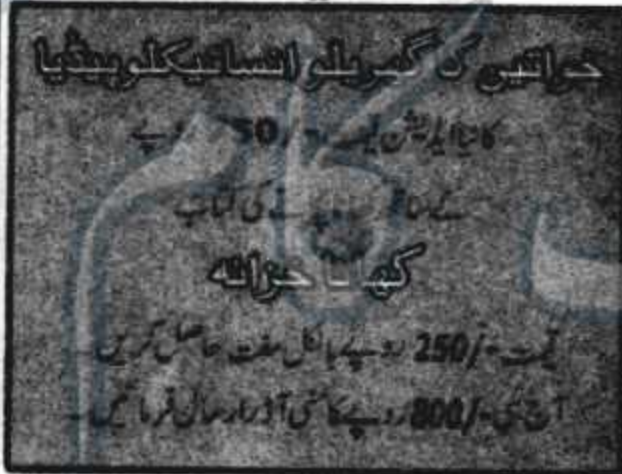 خواتین کا گھریلو انسائیکلوپیڈیا
کا نیا ایڈیشن قیمت روپے
کے ساتھ کی کتاب
خزانہ
قیمت -/250 روپے بالکل مفت حاصل کریں۔
آج ہی -/800 روپے کا منی آرڈر ارسال فرمائیں۔